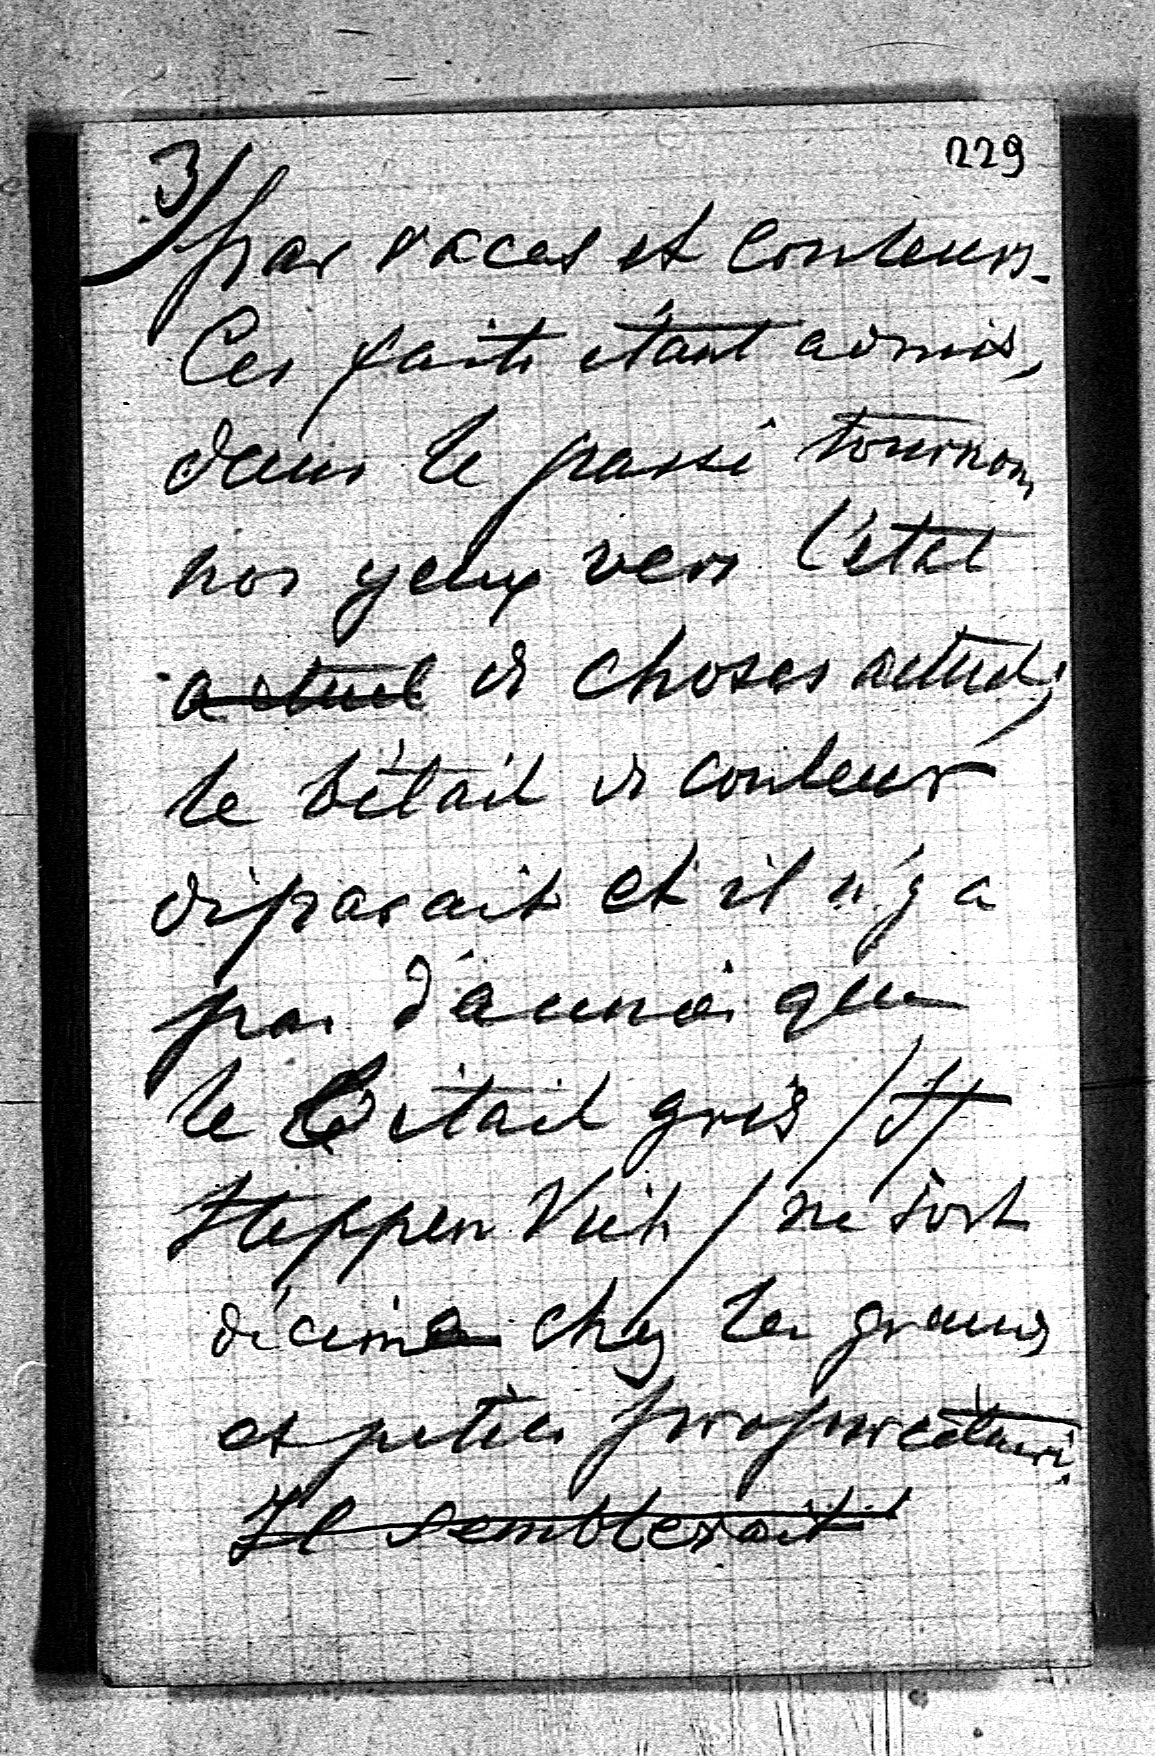 229
3/
par races et couleurs.
Ces faits étant admis,
dans le passé tournons
nos yeux vers l'état
actuel de choses actuel;
le bétail de couleur
disparait et il n'y a
pas d'année que
le Bétail gris /
Steppen Vieh / ne soit
décimé chez les grands
et petits propriétaires
Il semblerait